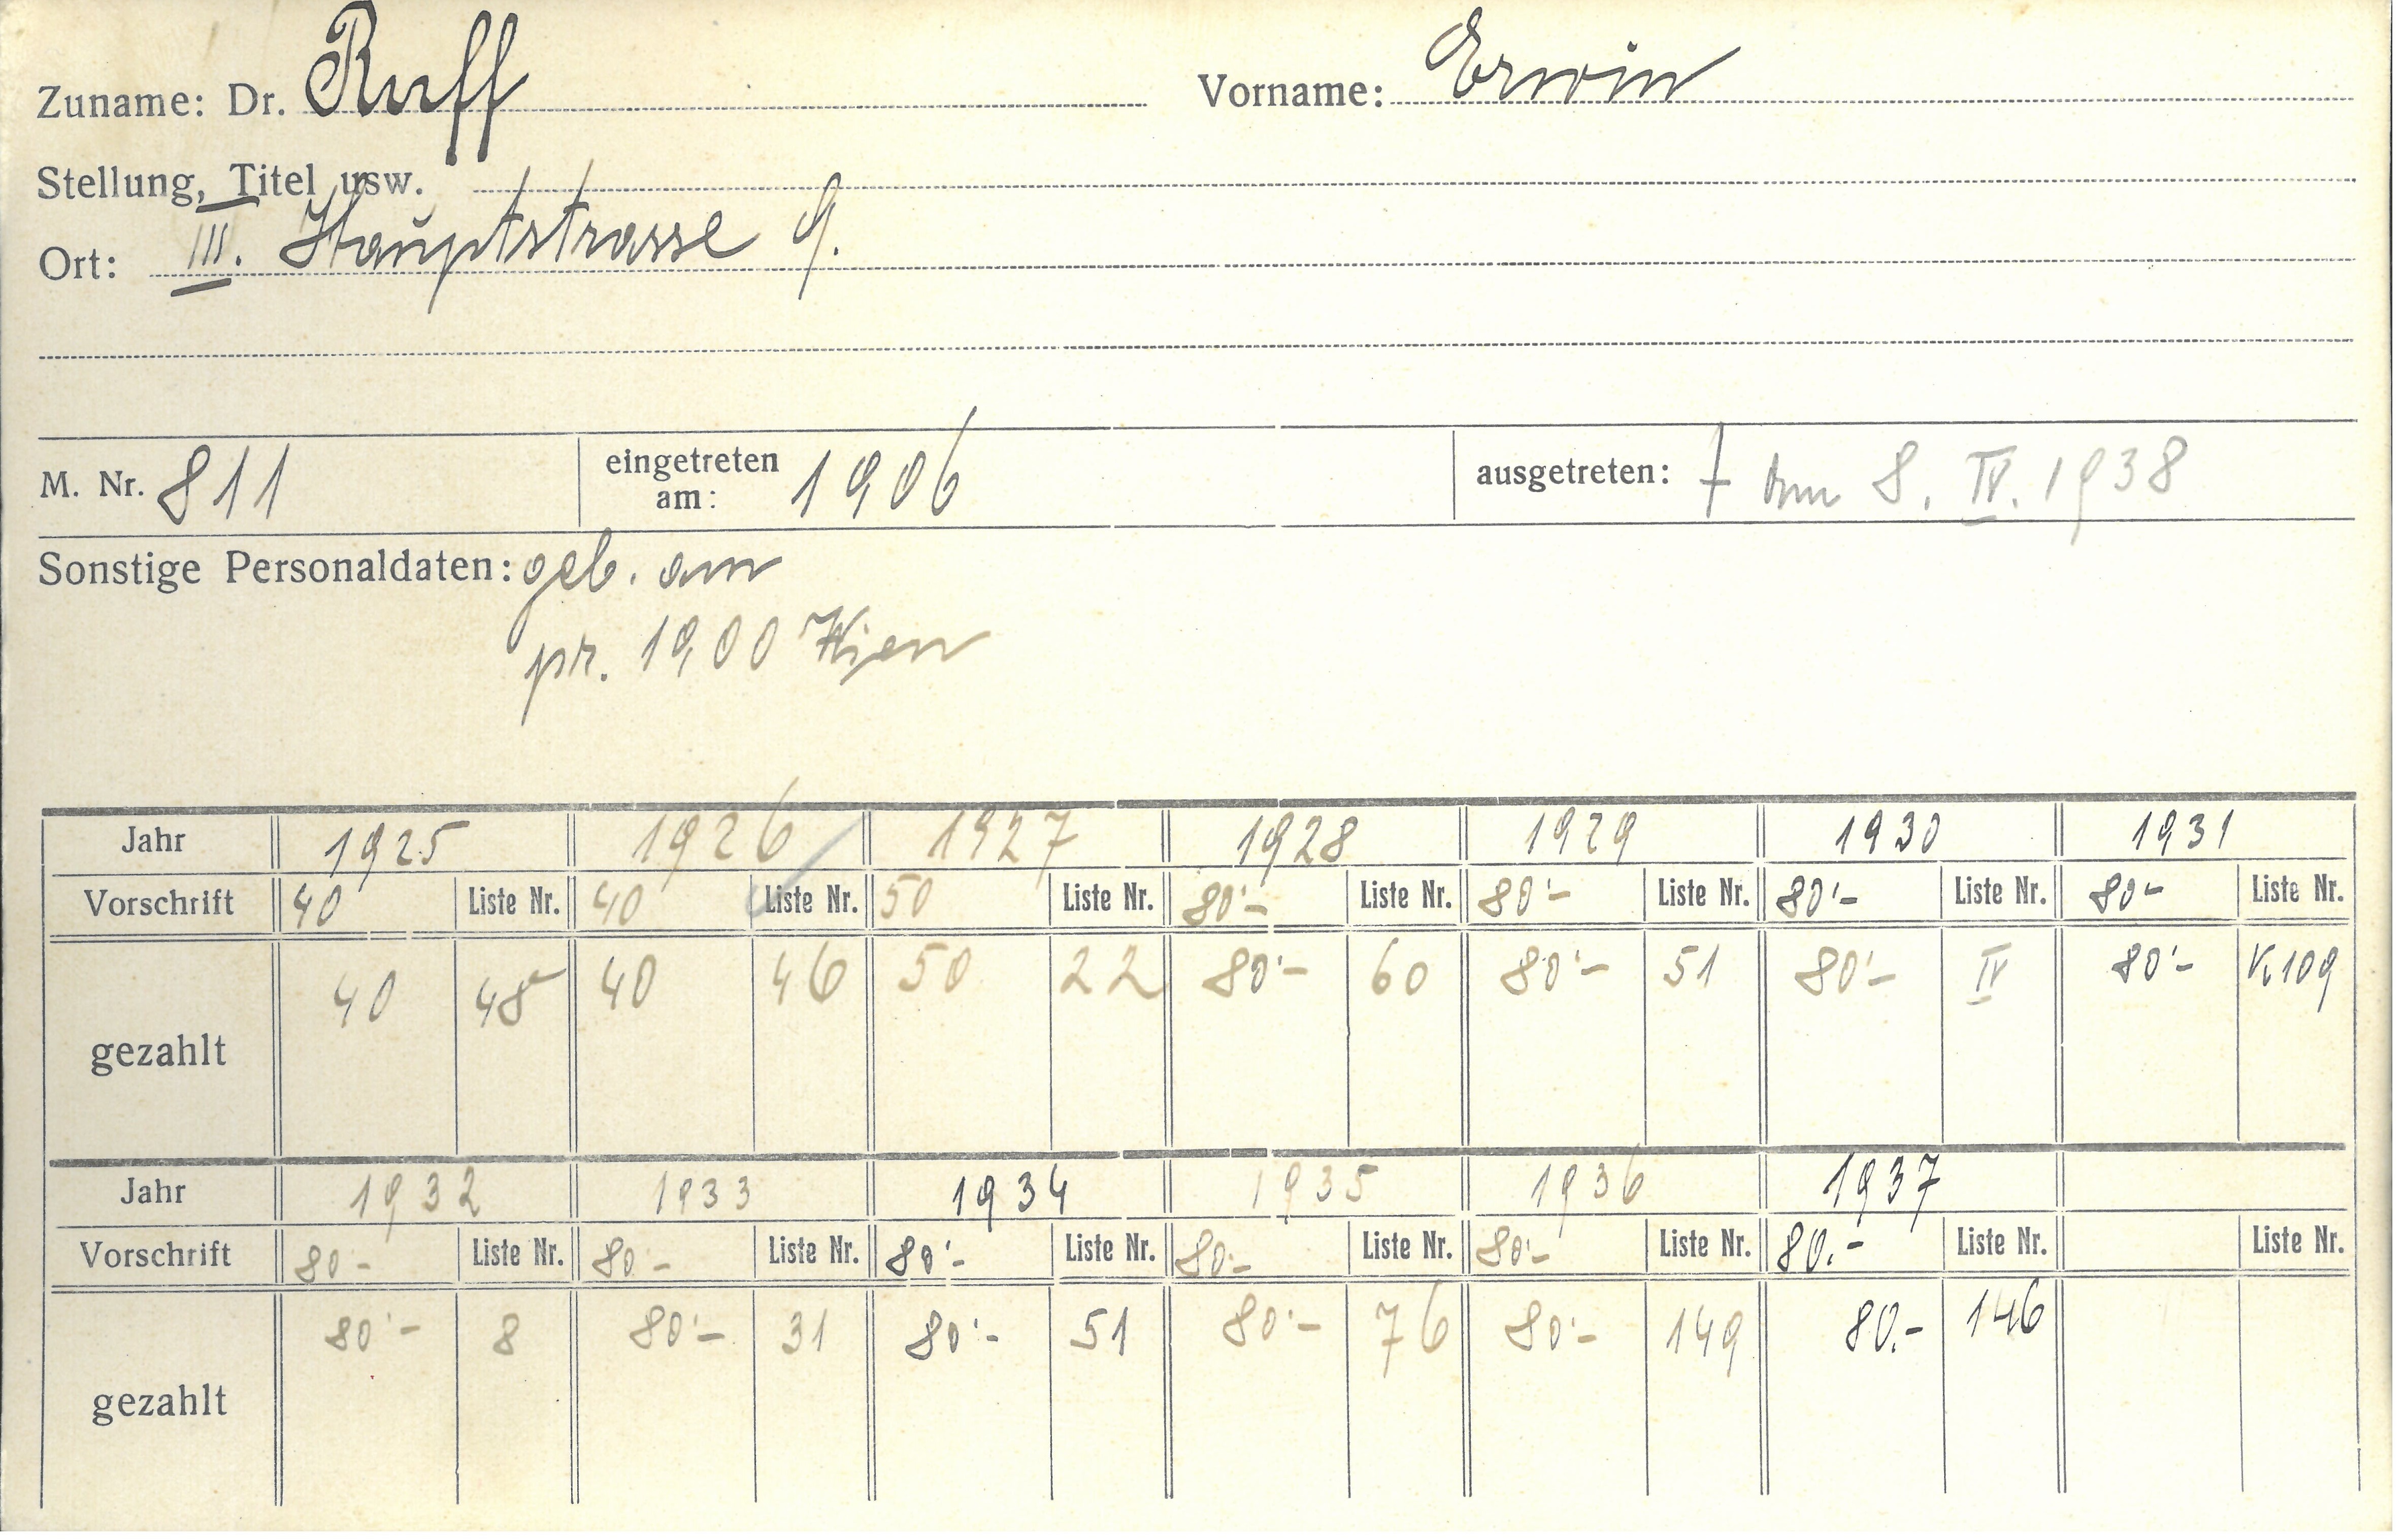 Zuname: Dr. Ruff Vorname: Erwin
Stellung, Titel usw.
Ort: III. Hauptstrasse 9.
M. Nr. 811 eingetreten am: 1906 ausgetreten: † am 8. IV. 1938
Sonstige Personaldaten: geb. am
pr. 1900 Wien
Jahr 1925 1926 1927 1928 1929 1930 1931
Vorschrift 40 Liste Nr. 40 Liste Nr. 50 Liste Nr. 80'- Liste Nr. 80'- Liste Nr. 80'- Liste Nr. 80'- Liste Nr.
gezahlt 40 48 40 46 50 22 80'- 60 80'- 51 80'- IV 80'- K109
Jahr 1932 1933 1934 1935 1936 1937
Vorschrift 80- Liste Nr. 80- Liste Nr. 80'- Liste Nr. 80- Liste Nr. 80'- Liste Nr. 80.- Liste Nr. Liste Nr.
gezahlt 80'- 8 80'- 31 80'- 51 80'- 76 80'- 149 80.- 146